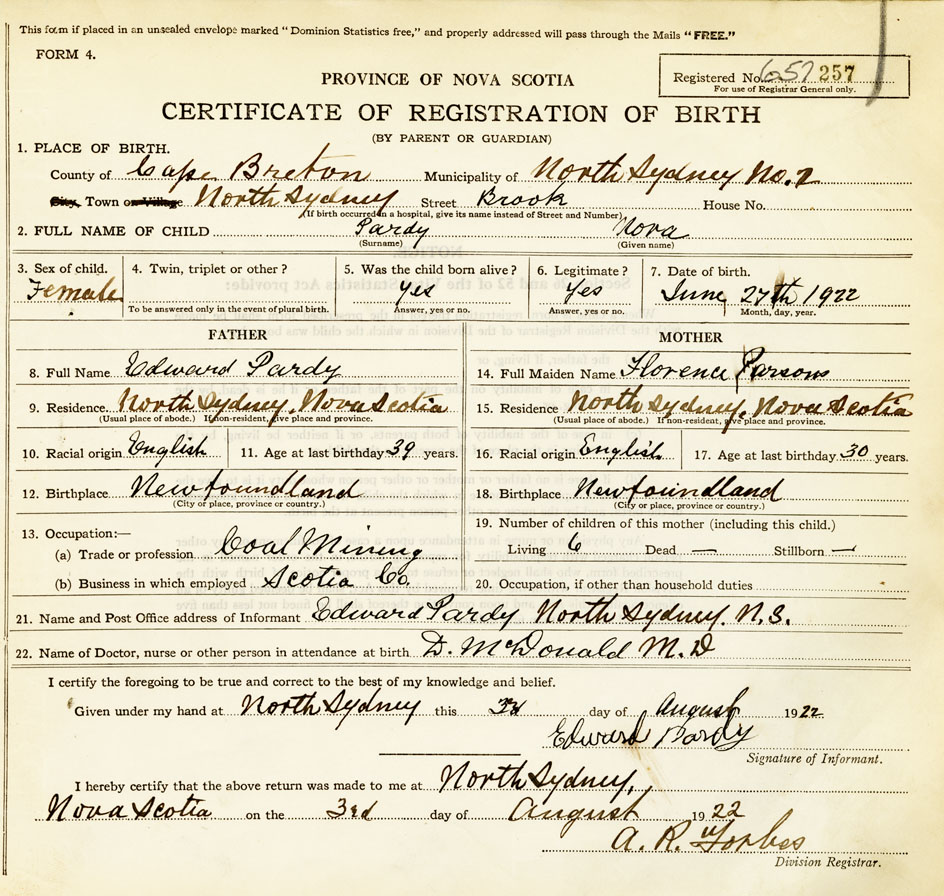 This form if placed in an unsealed envelope marked "Dominion Statistics free," and properly addressed will pass through the Mails "FREE."
FORM 4.
Registered No. 657 257
For use of Registrar General only.
PROVINCE OF NOVA SCOTIA
CERTIFICATE OF REGISTRATION OF BIRTH
(BY PARENT OR GUARDIAN)
1. PLACE OF BIRTH.
County of Cape Breton Municipality of North Sydney No. 2
City, Town or Village North Sydney Street Brook House No.
(If birth occurred in a hospital, give its name instead of Street and Number)
2. FULL NAME OF CHILD Pardy Nova
(Surname) (Given name)
3. Sex of child. 4. Twin, triplet or other? 5. Was the child born alive? 6. Legitimate? 7. Date of birth.
Female yes Yes June 27th 1922
To be answered only in the event of plural birth. Answer, yes or no. Answer, yes or no. Month, day, year.
FATHER MOTHER
8. Full Name Edward Pardy 14. Full Maiden Name Florence Parsons
9. Residence North Sydney, Nova Scotia 15. Residence North Sydney, Nova Scotia
(Usual place of abode.) If non-resident, give place and province. (Usual place of abode.) If non-resident, give place and province.
10. Racial origin English 11. Age at last birthday 39 years. 16. Racial origin English 17. Age at last birthday 30 years.
12. Birthplace Newfoundland 18. Birthplace Newfoundland
(City or place, province or country.) (City or place, province or country.)
13. Occupation:— 19. Number of children of this mother (including this child.)
(a) Trade or profession Coal Mining Living 6 Dead — Stillborn —
(b) Business in which employed Scotia Co. 20. Occupation, if other than household duties
21. Name and Post Office address of Informant Edward Pardy North Sydney. N.S.
22. Name of Doctor, nurse or other person in attendance at birth D. McDonald M.D
I certify the foregoing to be true and correct to the best of my knowledge and belief.
Given under my hand at North Sydney this 3rd day of August 1922
Edward Pardy
Signature of Informant.
I hereby certify that the above return was made to me at North Sydney,
Nova Scotia on the 3rd day of August 1922
A. R. Forbes
Division Registrar.